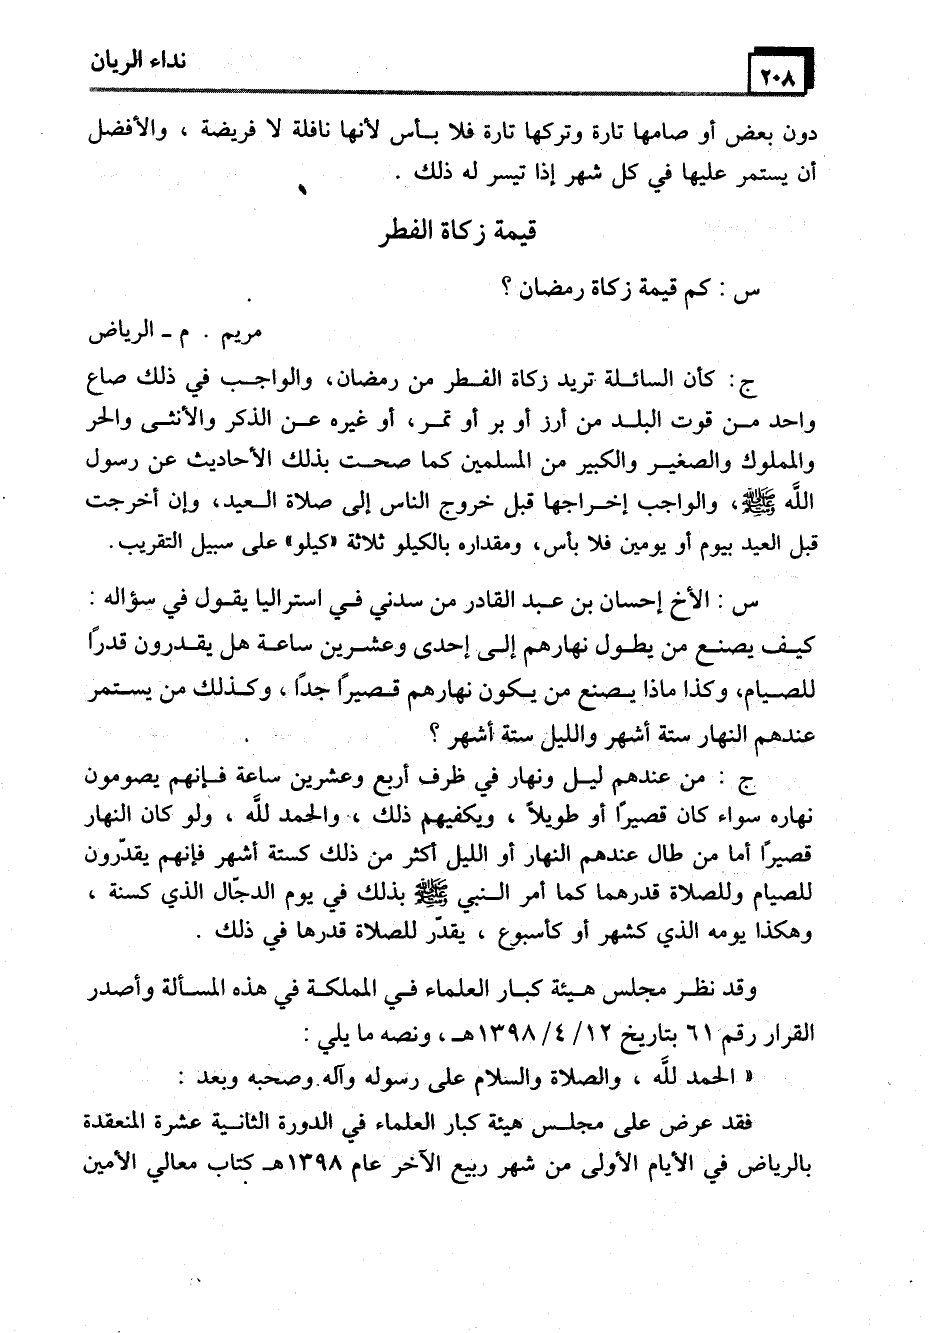 ٢٠٨
نداء الريان
دون بعض أو صامها تارة وتركها تارة فلا بـأس لأنها نافلة لا فريضة ، والأفضل
أن يستمر عليها في كل شهر إذا تيسر له ذلك .
قيمة زكاة الفطر
س : كم قيمة زكاة رمضان ؟
مريم . م - الرياض
ج : كأن السائلة تريد زكاة الفطر من رمضان، والواجب في ذلك صاع
واحد من قوت البلد من أرز أو بر أو تمر، أو غيره عن الذكر والأنثى والحر
والمملوك والصغير والكبير من المسلمين كما صحت بذلك الأحاديث عن رسول
اللَّه ﷺ، والواجب إخراجها قبل خروج الناس إلى صلاة العيد، وإن أخرجت
قبل العيد بيوم أو يومين فلا بأس، ومقداره بالكيلو ثلاثة «كيلو» على سبيل التقريب.
س : الأخ إحسان بن عبد القادر من سدني في استراليا يقول في سؤاله :
كيف يصنع من يطول نهارهم إلى إحدى وعشرين ساعة هل يقدرون قدراً
للصيام، وكذا ماذا يصنع من يكون نهارهم قصيراً جداً ، وكذلك من يستمر
عندهم النهار ستة أشهر والليل ستة أشهر ؟
ج : من عندهم ليل ونهار في ظرف أربع وعشرين ساعة فإنهم يصومون
نهاره سواء كان قصيراً أو طويلاً ، ويكفيهم ذلك ، والحمد للَّه ، ولو كان النهار
قصيراً أما من طال عندهم النهار أو الليل أكثر من ذلك كستة أشهر فإنهم يقدّرون
للصيام وللصلاة قدرهما كما أمر النبي ﷺ بذلك في يوم الدجّال الذي كسنة ،
وهكذا يومه الذي كشهر أو كأسبوع ، يقدّر للصلاة قدرها في ذلك .
وقد نظر مجلس هيئة كبار العلماء في المملكة في هذه المسألة وأصدر
القرار رقم ٦١ بتاريخ ١٢/ ٤/ ١٣٩٨هـ ، ونصه ما يلي :
« الحمد للَّه ، والصلاة والسلام على رسوله وآله وصحبه وبعد :
فقد عرض على مجلس هيئة كبار العلماء في الدورة الثانية عشرة المنعقدة
بالرياض في الأيام الأولى من شهر ربيع الآخر عام ١٣٩٨هـ كتاب معالي الأمين